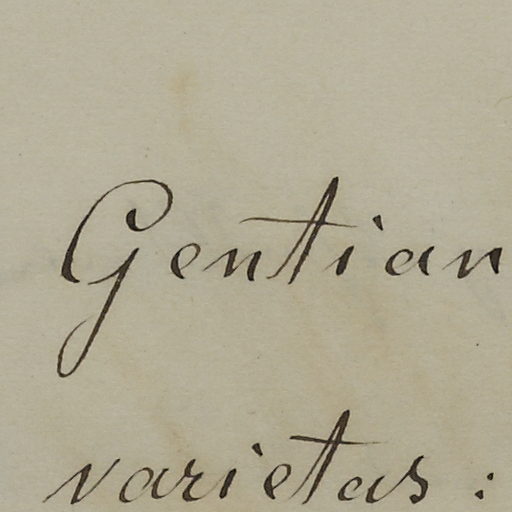 Gentian
varietas :